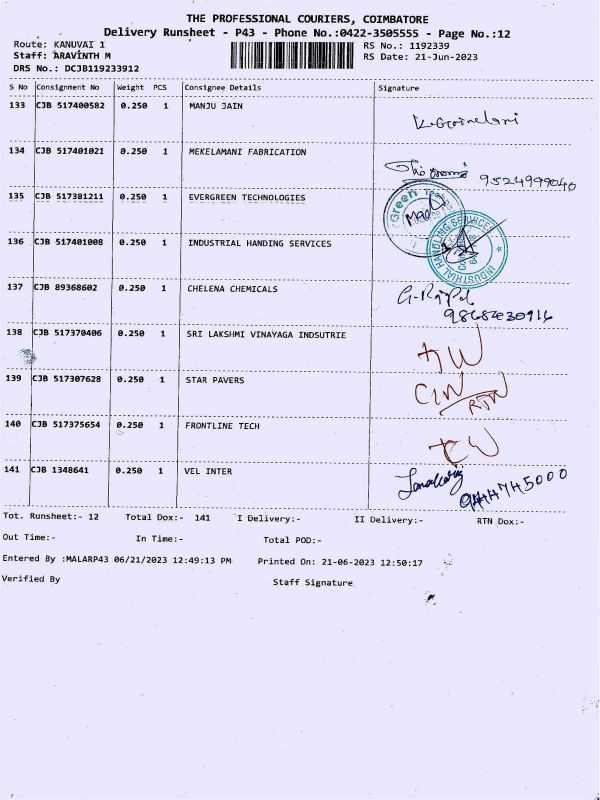 THE PROFESSIONAL COURIERS, COIMBATORE
Delivery Runsheet - P43 - Phone No.:0422-3505555 - Page No.:12
Route: KANUVAI 1 RS No.: 1192339
Staff: ARAVINTH M RS Date: 21-Jun-2023
DRS No.: DCJB119233912
S No Consignment No Weight PCS Consignee Details Signature
133 CJB 517400582 0.250 1 MANJU JAIN
134 CJB 517401021 0.250 1 MEKELAMANI FABRICATION
9524999040
135 CJB 517381211 0.250 1 EVERGREEN TECHNOLOGIES
Green Tech
136 CJB 517401008 0.250 1 INDUSTRIAL HANDING SERVICES
INDUSTRIAL HANDLING SERVICES
137 CJB 89368602 0.250 1 CHELENA CHEMICALS
138 CJB 517370406 0.250 1 SRI LAKSHMI VINAYAGA INDSUTRIE
139 CJB 517307628 0.250 1 STAR PAVERS
RTN
140 CJB 517375654 0.250 1 FRONTLINE TECH
141 CJB 1348641 0.250 1 VEL INTER
Tot. Runsheet:- 12 Total Dox:- 141 I Delivery:- II Delivery:- RTN Dox:-
Out Time:- In Time:- Total POD:-
Entered By :MALARP43 06/21/2023 12:49:13 PM Printed On: 21-06-2023 12:50:17
Verified By Staff Signature